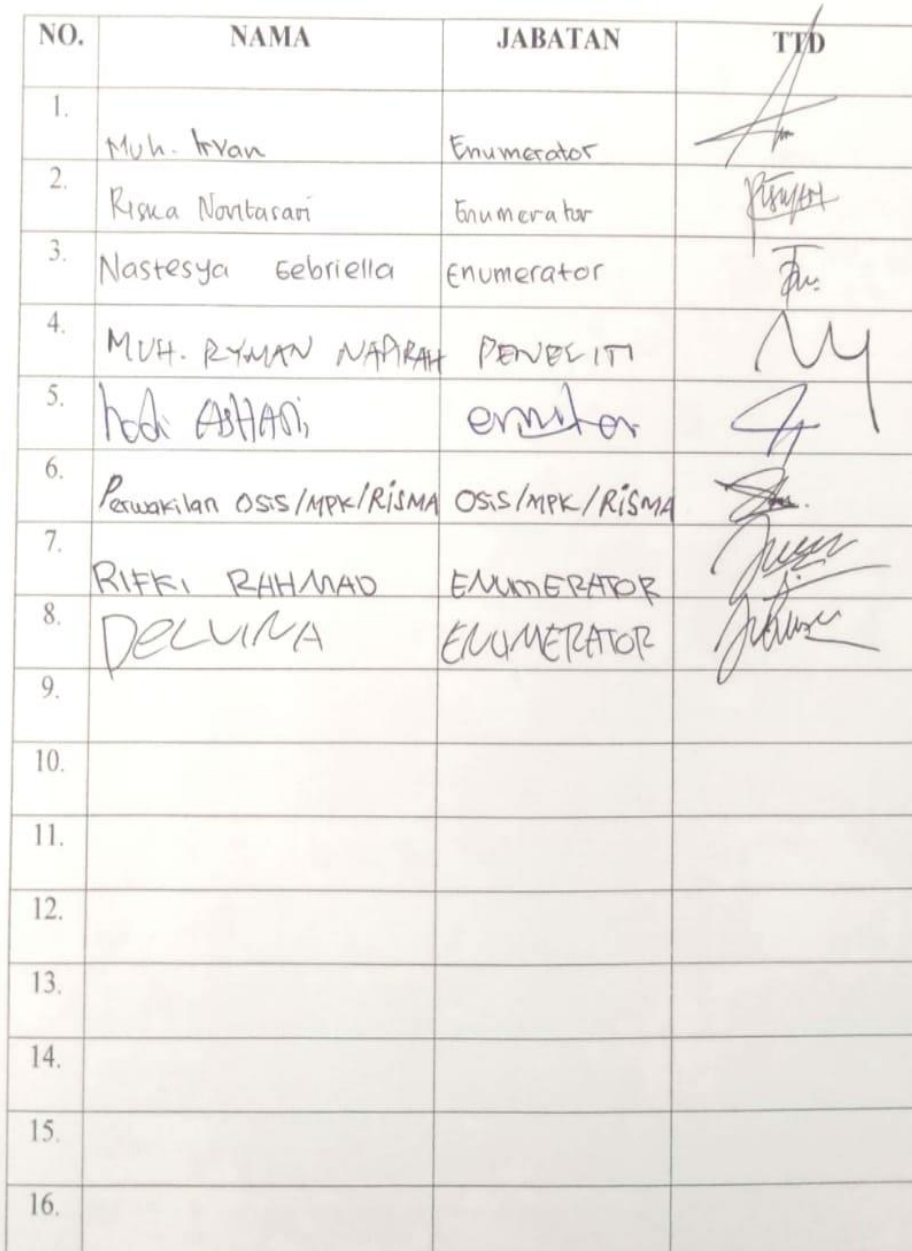 NO. NAMA JABATAN TTD
1. Muh. Irvan Enumerator
2. Riska Novitasari Enumerator
3. Nastesya Gebriella Enumerator
4. MUH. RYMAN NAPIRAH PENELITI
5. hadi ASHARi
6. Perwakilan OSIS/MPK/RiSMA OSIS/MPK/RiSMA
7. RIFKI RAHMAD ENUMERATOR
8. DELVINA ENUMERATOR
9.
10.
11.
12.
13.
14.
15.
16.